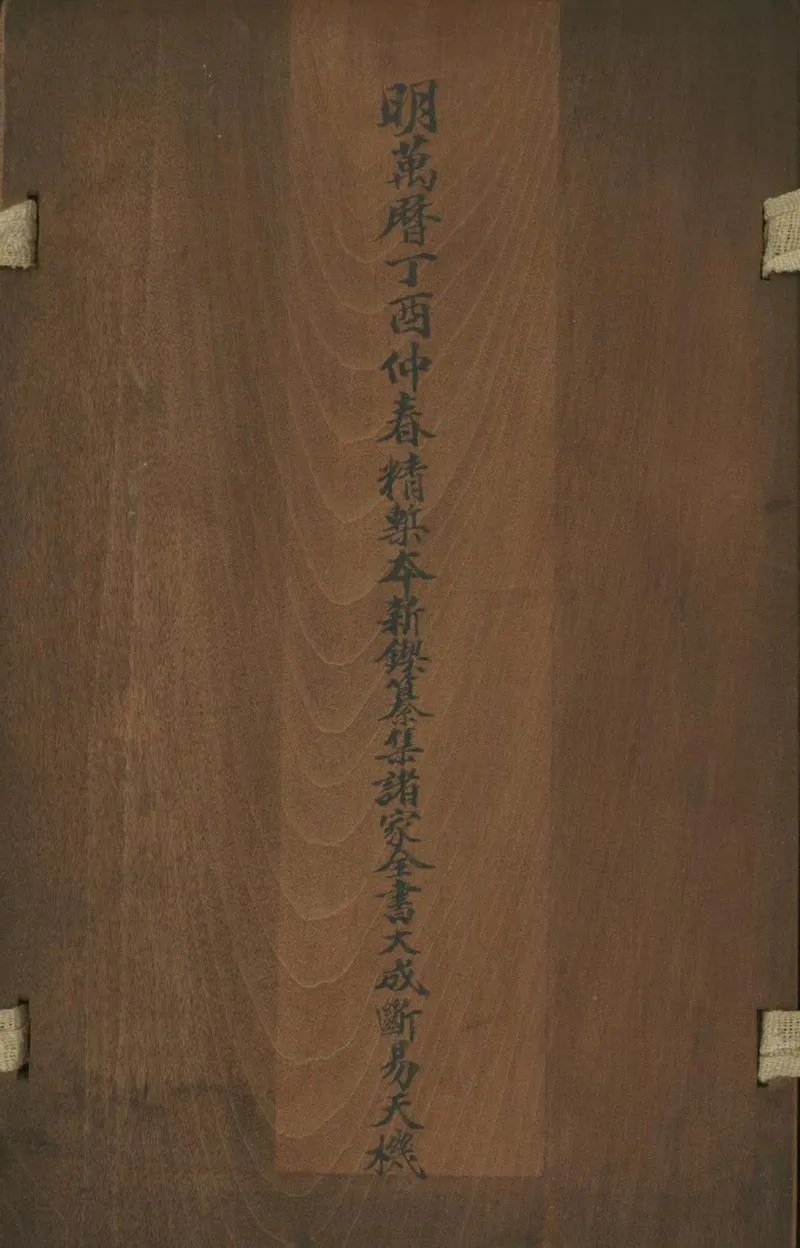 明萬暦丁酉仲春精槧本新鐭纂集諸家全書大成斷易天機